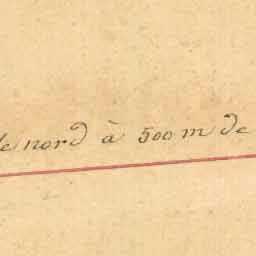 le nord à 500 m de